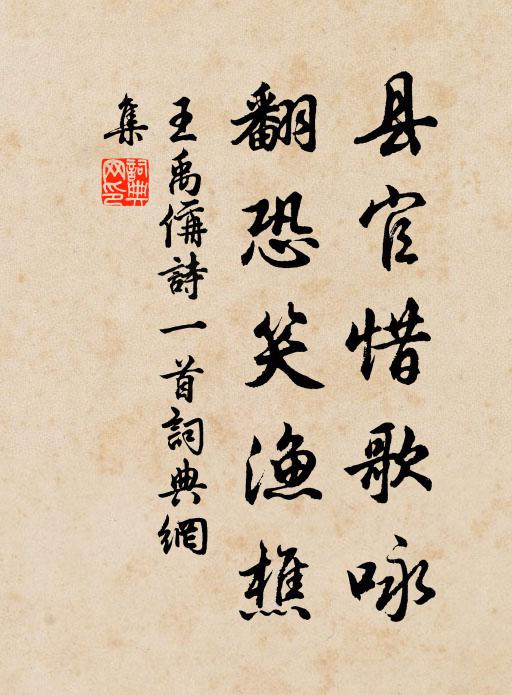 县官惜歌咏
翻恐笑渔樵
王禹偁詩一首詞典網
集
詞典
网印